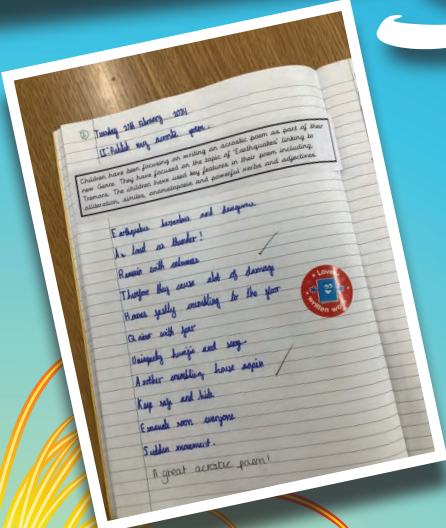 Tuesday 27th February 2024
LI: Publish my acrostic poem.
Children have been focusing on writing an acrostic poem as part of their
new Genre. They have focused on the topic of 'Earthquakes' linking to
Tremors. The children have used key features in their poem including
alliteration, similes, onomatopoeia and powerful verbs and adjectives.
Earthquakes and dangerous.
As loud as thunder!
Remain with calmness
Therefore they cause alot of damage
Houses crumbling to the floor
Quiver with fear
Uniquely and scary.
Another crumbling house again
Keep safe and hide
Evacuate soon everyone
Sudden movement.
A great acrostic poem!
Lovely
written work